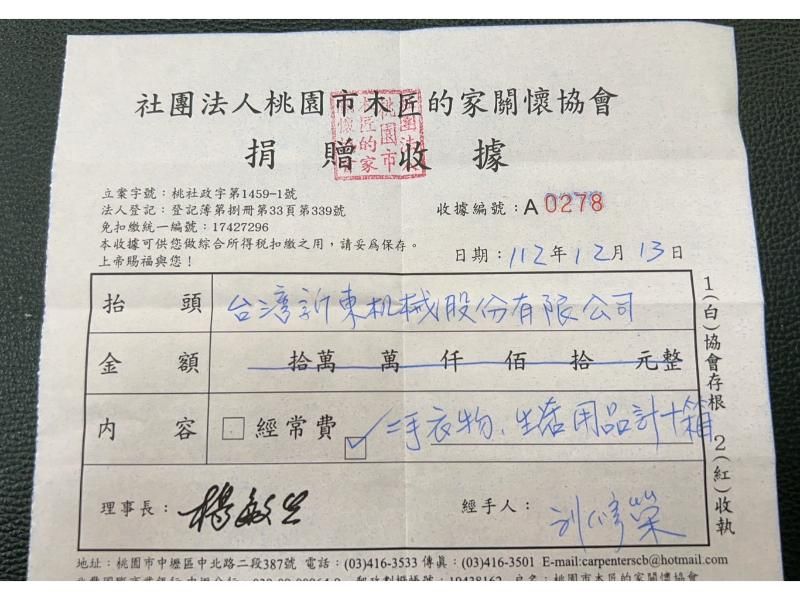 社團法人桃園市木匠的家關懷協會
捐贈收據
立案字號：桃社政字第1459-1號
法人登記：登記簿第捌冊第33頁第339號
免扣繳統一編號：17427296
本收據可供您做綜合所得稅扣繳之用，請妥為保存。
上帝賜福與您！
收據編號：A 0278
日期：112年12月13日
抬頭 台灣新東机械股份有限公司
金額 拾萬 萬 仟 佰 拾 元整
內容 □ 經常費 ☑ 二手衣物、生活用品計十箱
理事長：
經手人：
1(白)協會存根 2(紅)收執
地址：桃園市中壢區中北路二段387號 電話：(03)416-3533 傳眞：(03)416-3501 E-mail:carpenterscb@hotmail.com